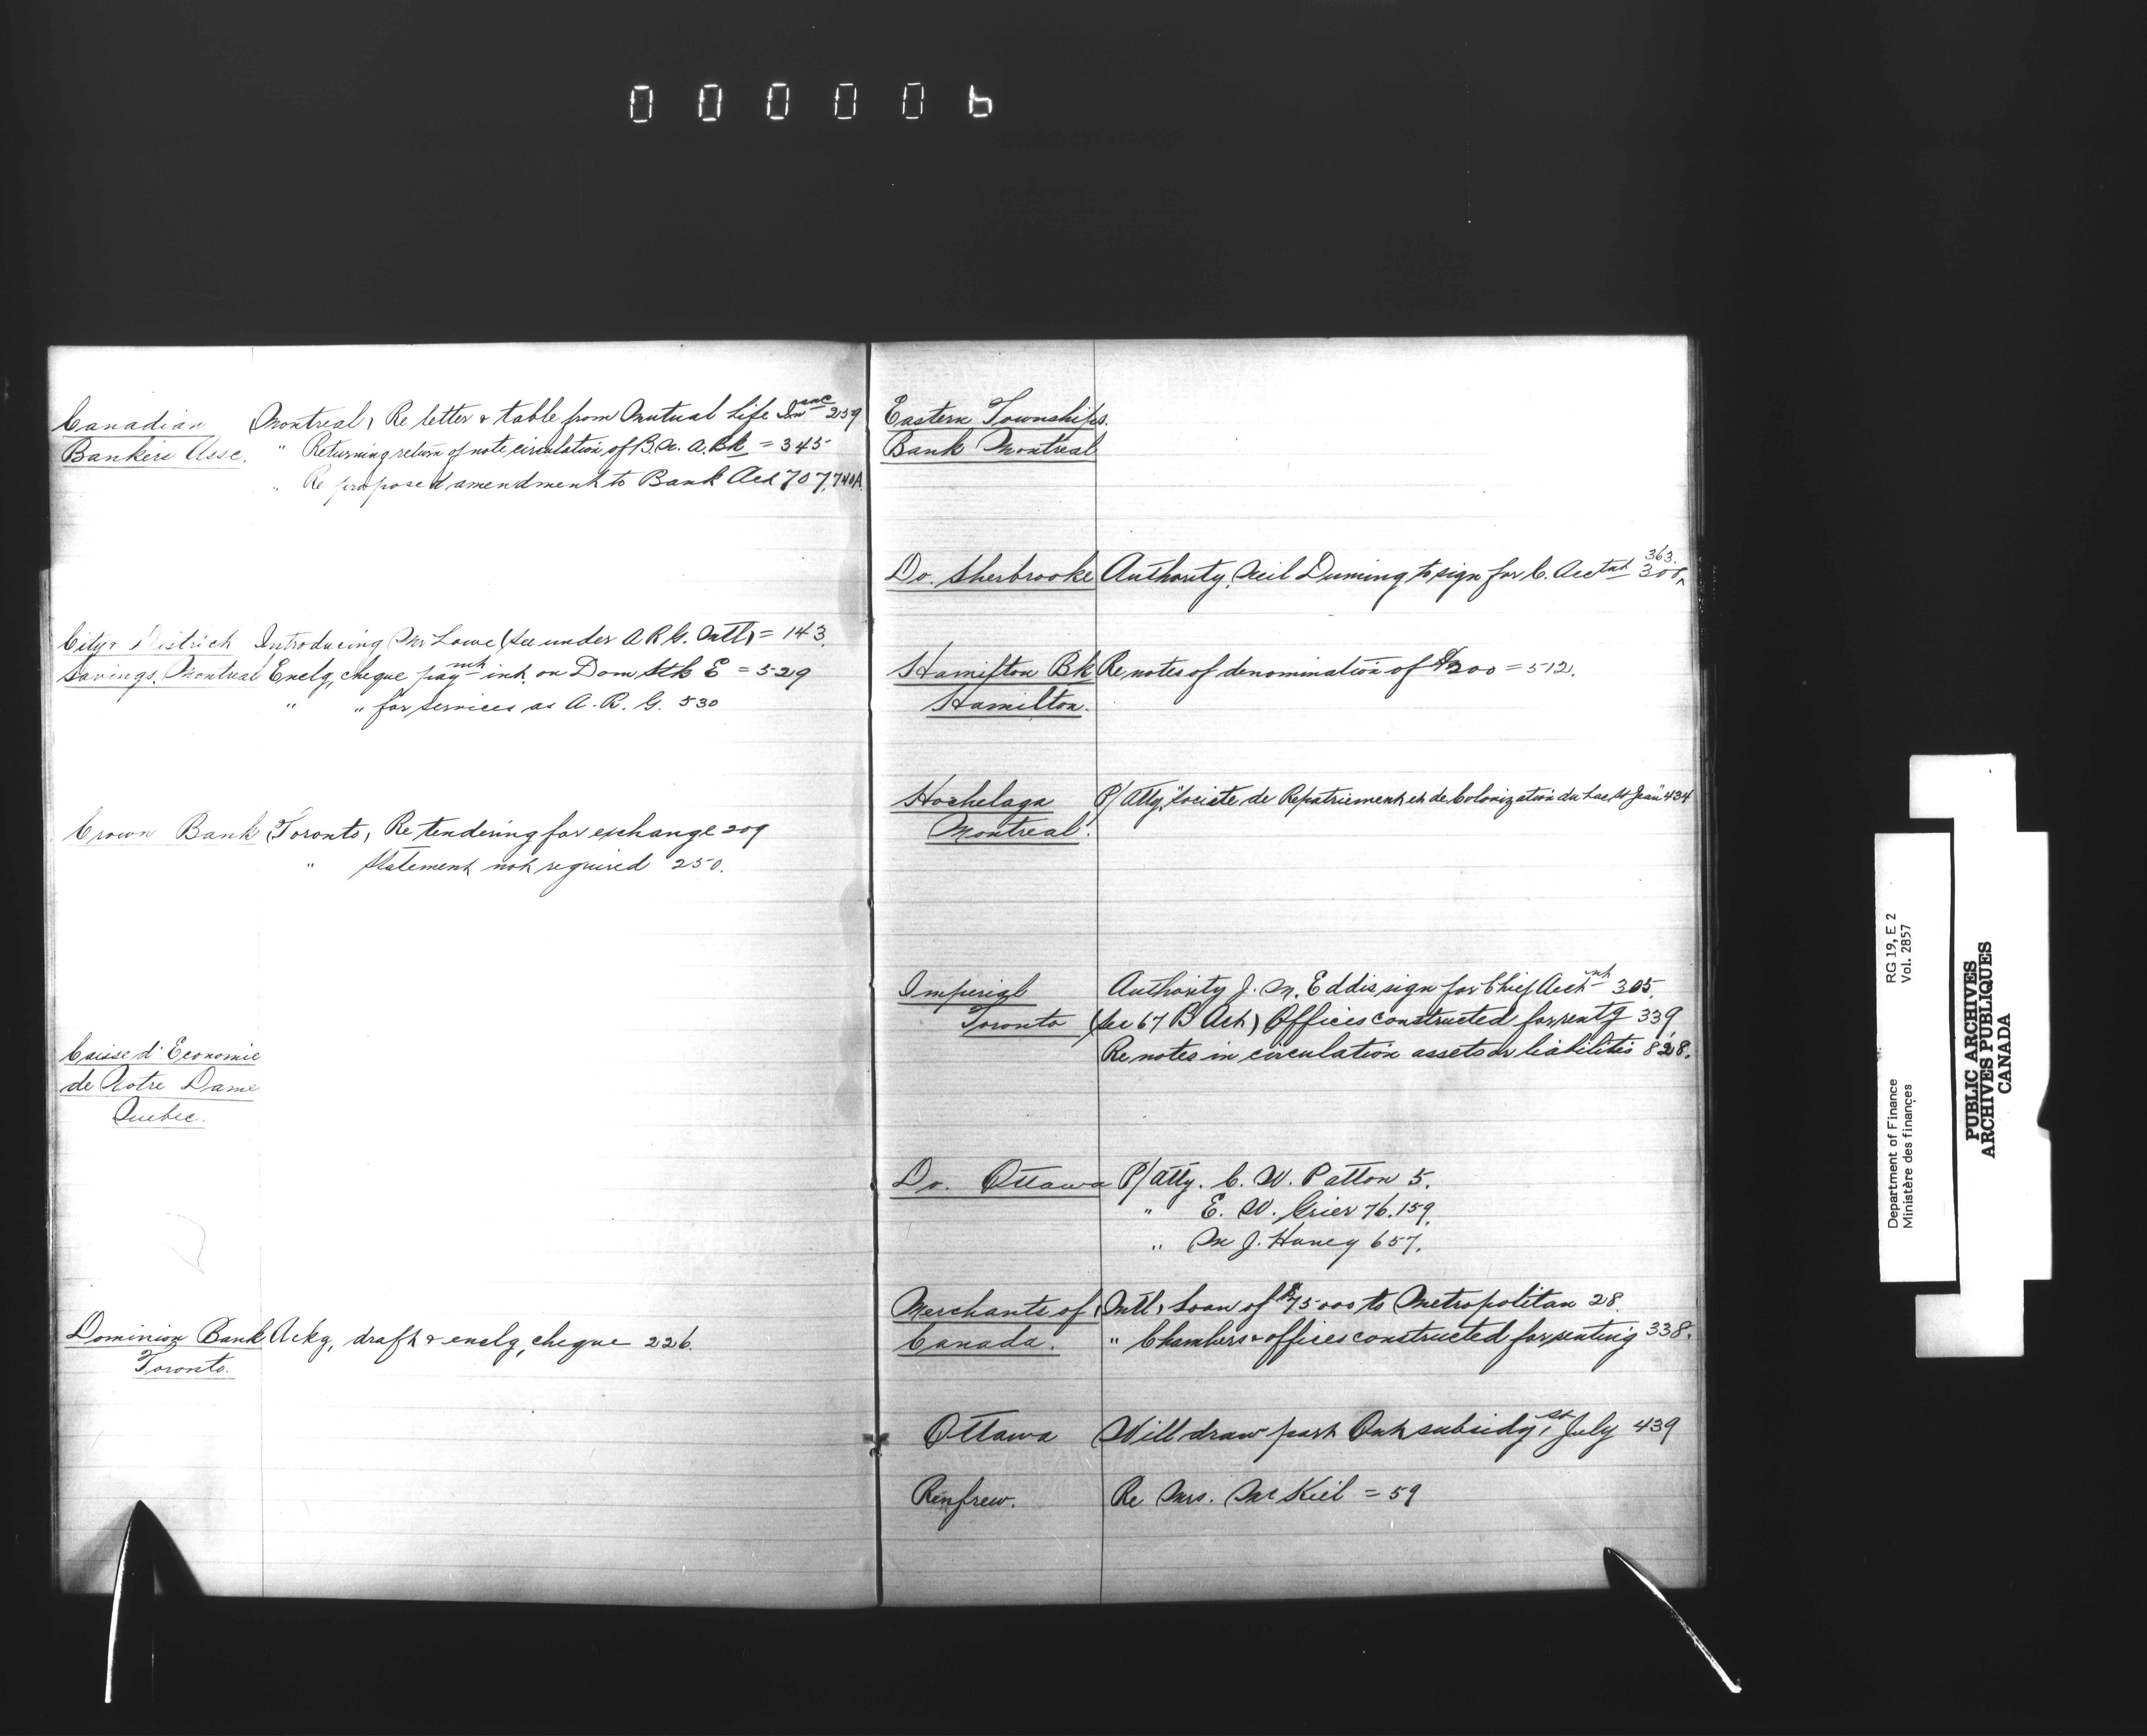 000006
Canadian (Montreal) Re letter & table from Mutual Life Insnce 259
Bankers Assc. " Returning return of note circulation of B. N. A. Bk = 345
" Re proposed amendment to Bank Act 707, 740A
City & District Introducing Mr Lowe (See under A R G. Mtl) = 143
Savings. Montreal Enclg, cheque paymt int. on Dom Stk E = 529
" " for services as A. R. G. 530
Crown Bank (Toronto) Re tendering for exchange 209
" Statement not required 250.
Caisse d'Economie
de Notre Dame
Quebec.
Dominion Bank Ackg, draft & enclg, cheque 226.
Toronto.
Eastern Townships.
Bank Montreal
363.
Do. Sherbrooke Authority, Neil Duming to sign for C. Acctnt 300,
Hamilton Bk Re notes of denomination of $200 = 512.
Hamilton.
Hochelaga P/ Atty, "Societe de Repatriement et de Colonization du Lac St Jean" 434
Montreal.
Imperial Authority J. N. Eddis sign for Chief Acctnt 305.
Toronto (See 67 B Act) Offices constructed for rentg 339,
Re notes in circulation assets or liabilitis 828.
Do. Ottawa P/ Atty. C. W. Patton 5.
" E. W. Grier 76. 159.
" M J. Haney 657.
Merchants of (Mtl) Loan of $75000 to Metropolitan 28.
Canada. " Chambers & offices constructed for renting 338.
Ottawa Will draw part Ont subsidy 1st July 439
Renfrew. Re Mrs. McKiel = 59
RG 19, E 2
Vol. 2857
Department of Finance
Ministère des finances
PUBLIC ARCHIVES
ARCHIVES PUBLIQUES
CANADA